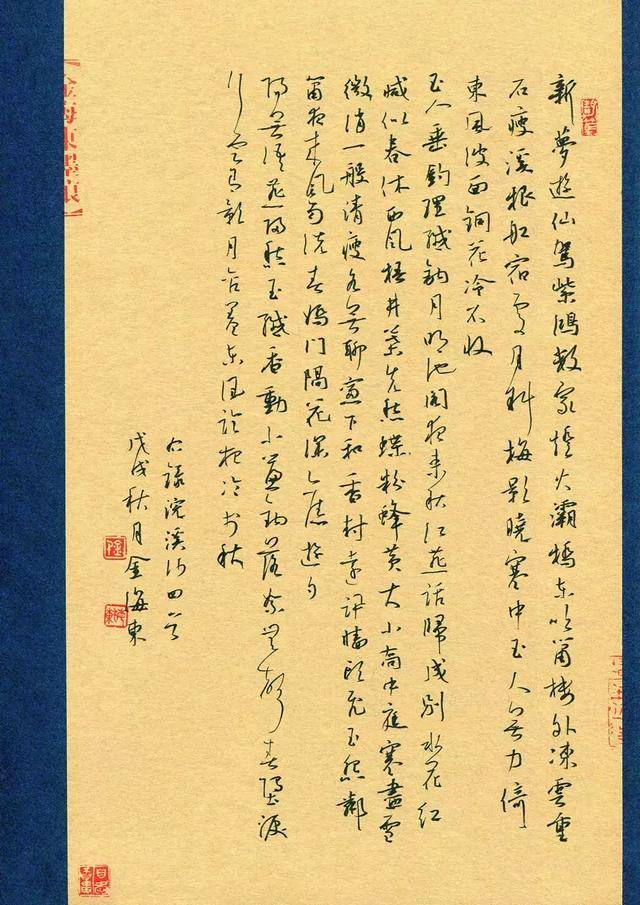 新夢遊仙駕紫鴻數家燈火灞橋東吹簫樓外凍雲重
石瘦溪根船宿處月斜梅影曉寒中玉人無力倚
東風波面銅花冷不收
玉人垂釣理纖鉤月明池閣夜來秋江燕話歸成別水花紅
減似春休西風梧井葉先愁蝶粉蜂黃大小喬中庭寒盡雪
微消一般清瘦各無聊窗下和香封遠訊牆頭飛玉怨鄰
簫夜來風雨洗春嬌門隔花深舊遊夕
陽無語燕歸愁玉纖香動小簾鉤落絮無聲春墮淚
行雲有影月含羞東風臨夜冷於秋
右錄浣溪沙四首
戊戌秋月金海東
金海東墨痕